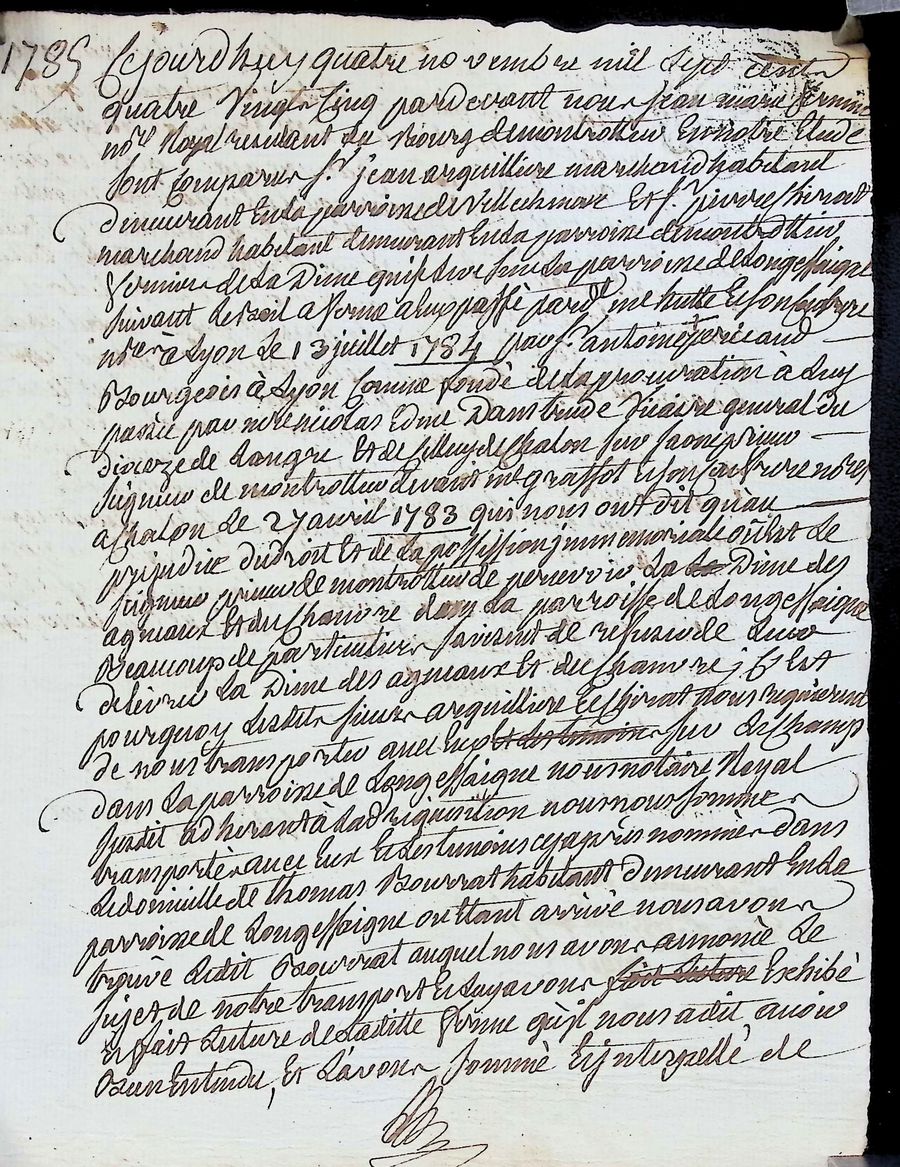 1785
Cejourdhuy quatre novembre mil Sept cent
quatre Vingt Cinq pardevant nous Jean marie
nore Royal residant Au Bourg demontrottier En notre Etude
Sont Comparus Sr jean arquilliere marchand habitant
demeurant Enla parroisse de Villechenave Et Sr pierre Chirat
marchand habitant demeurant Enla parroisse demontrottier
fermiers dela Dime quise leve sur La parroisse deLongessaigne
Suivant Lebail a ferme aeux passé pard me hutte Et son Confrere
nores à Lyon Le 13 juillet 1784 par Sr antoine pericaud
Bourgeois à Lyon Comme fondé delaprocuration à Luy
passée par mre nicolas Edme Vicaire general du
Dioceze de Langre Et de Celluy de Chalon Sur Saone prieur
Seigneur de montrottier devant me grassot Et son Confrere nores
a Chalon Le 27 avril 1783 qui nous ont dit qu'au
prejudice dudroit Et de La possession jmmemoriale où Est Le
Seigneur prieur de montrottier de percevoir La La Dime des
agneaux Et du Chanvre dans La parroisse de Longessaigne
Beaucoup de particuliers savisent de refuser de Leur
delivrer La Dime des agneaux Et du Chanvre, C'Est
pourquoy Lesdits Sieurs arquilliere Et Chirat nous requierent
de nous transporter avec Eux et des temoins Sur Le Champ
dans La parroisse de Longessaigne nous notaire Royal
Susdit adherant à Ladte requisition nous nous sommes
transportés avec Eux Et les temoins cy après nommés dans
Le domicille de thomas Bourrat habitant demeurant Enla
parroisse de Longessaigne ou Etant arrivé nous avons
trouvé Ledit Bourrat auquel nous avons annoncé Le
Sujet de notre transport Et Luy avons fait Lecture Exhibé
Et fait Lecture de Laditte ferme qu'jl nous a dit avoir
Bien Entendu, Et L'avons sommé Et jnterpellé de